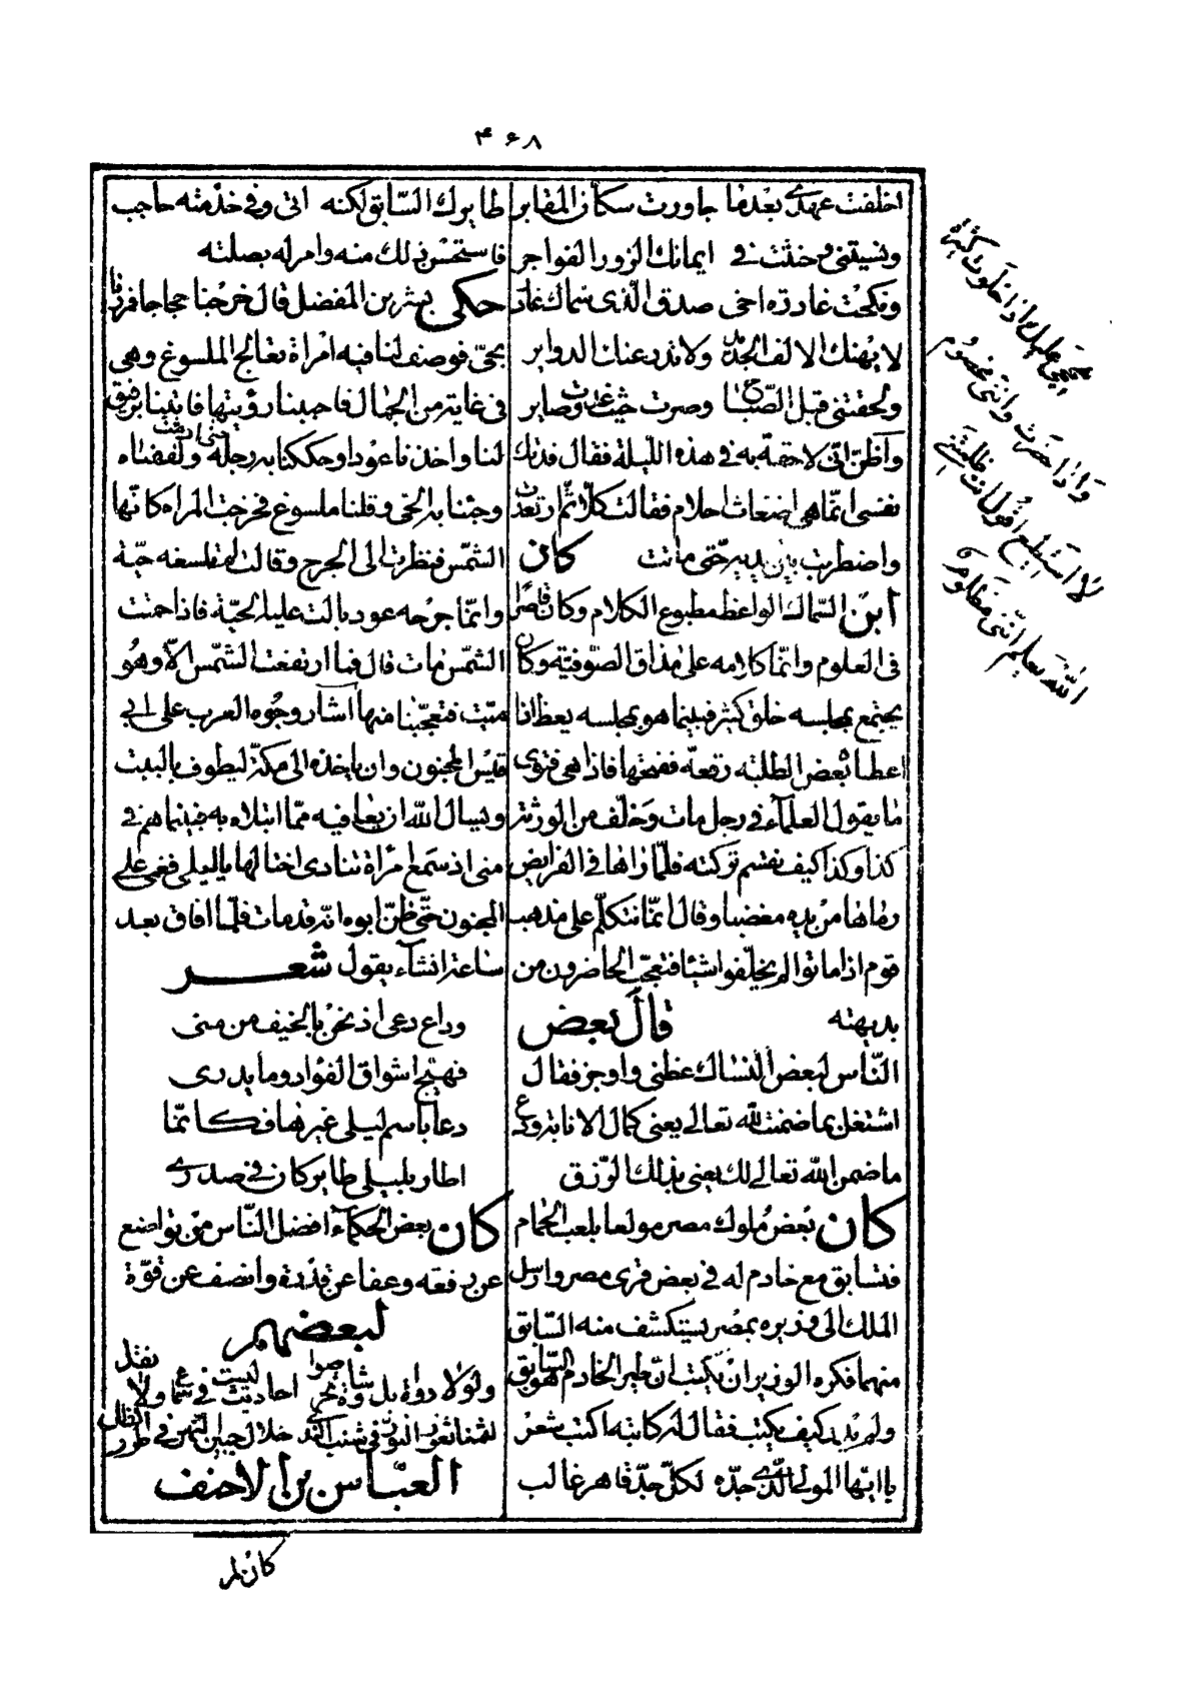 ۴۶۸
اخلفت عهدی بعدما جاورت سکان المقابر
ونسیتنی وحنثت فی ایمانك الزور الفواجر
ونکحت غادرة اخی صدق الذی سماك غادر
لا یهنك الالف الجدید ولا تدر عنك الدوایر
ولحقتنی قبل الصباح وصرت حیث غدوت صایر
واظن انی لاحقة به فی هذه اللیلة فقال فدتك
نفسی انما هی اضغاث احلام فقالت کلا ثم ارتعدت
واضطربت بین یدیه حتی ماتت کان
ابن السماك الواعظ مطبوع الکلام وکان قاصرا
فی العلوم وانما کلامه علی مذاق الصوفیة وکان
یجتمع بمجلسه خلق کثیر فبینما هو بمجلسه یعظ اذا
اعطاه بعض الطلبه رقعة ففتحها فاذا هی فتوی
ما یقول العلماء فی رجل مات وخلف من الورثة
کذا وکذا کیف نقسم ترکته فلما راها فی الفرایض
رماها من یده مغضبا وقال انما نتکلم علی مذهب
قوم اذا ماتوا لم یخلفوا شیئا فتعجب الحاضرون من
بدیهته قال بعض
الناس لبعض النساك عظنی واوجز فقال
اشتغل بما ضمنت لله تعالی یعنی کمال الانابة ودع
ما ضمن الله تعالی لك یعنی بذلك الرزق
کان بعض ملوك مصر مولعا بلعب الحمام
فتسابق مع خادم له فی بعض قری مصر وارسل
الملك الی وزیره بمصر یستکشف منه السابق
منهما فکره الوزیر ان یکتب ان طیر الخادم هو السابق
ولم یدر کیف یکتب فقال له کاتبه اکتب شعر
یا ایها المولی الذی جده لکل جد قاهر غالب
طایرك السابق لکنه اتی وفی خدمته حاجب
فاستحسن ذلك منه وامر له بصلته
حکی بشر بن المفضل قال خرجنا حجاجا فمررنا
بحی فوصف لنا فیه امراة تعالج الملسوع وهی
فی غایة من الجمال فاحببنا رؤیتها فاتینا برفیق
لنا واخذنا عودا وحککنا به رجله حتی ادمیت ولففناه
وجئنا به الحی وقلنا ملسوع فخرجت المراه کانها
الشمس فنظرت الی الجرح وقالت لم تلسعه حیة
وانما جرحه عود بالت علیه الحیة فاذا حمیت
الشمس مات قال فما ارتفعت الشمس الا وهو
میت فتعجبنا منها اشار وجوه العرب علی ابی
قیس المجنون وان یاخذه الی مکة لیطوف بالبیت
ویسال الله ان یعافیه مما ابتلاه به فبینما هم فی
منی اذ سمع امراة تنادی اختا لها یا لیلی فغشی علی
المجنون حتی ظن ابوه انه قد مات فلما افاق بعد
ساعة انشاء یقول شعر
وداع دعی اذ نحن بالخیف من منی
فهیج اشواق الفؤاد وما یدری
دعا باسم لیلی غیرها فکانما
اطار بلیلی طایر کان فی صدری
کان بعض الحکماء افضل الناس من تواضع
عن رفعه وعفا عن قدرة وانصف عن قوة
لبعضهم
العباس بن الاحنف
واذا حضرت واننی مخصوم
لا استطیع اقول انت ظلمتنی
الله یعلم اننی مظلوم
کان لم